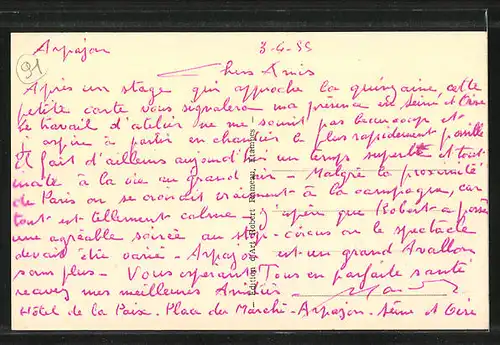 91
Arpajon 3-4-55
Chers Amis
Après un stage qui approche la quinzaine, cette
petite carte vous signalera ma présence en Seine et Oise
Le travail d'atelier ne me sourit pas beaucoup et
j'aspire à partir en chantier le plus rapidement possible
Il fait d'ailleurs aujourd'hui un temps superbe et tout
invite à la vie au grand air - Malgré la proximité
de Paris on se croirait vraiment à la campagne, car
tout est tellement calme. J'espère que Robert a passé
une agréable soirée au cirque ou le spectacle
devait être varié - Arpajon est un grand Avallon
sans plus - Vous espérant Tous en parfaite santé
recevez mes meilleures Amitiés
Hôtel de la Paix. Place du Marché - Arpajon - Seine et Oise
Edition d'Art Robert Rameau, Etampes